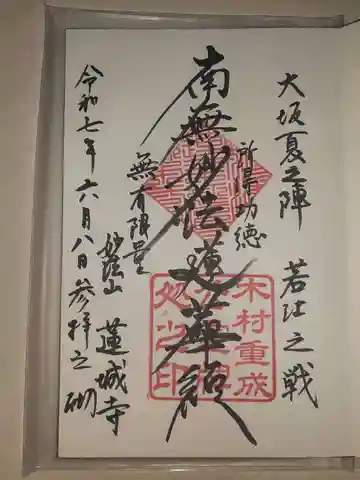 大坂夏之陣 若江之戦
所得功徳
南無妙法蓮華経
無有限量
木村重成
妙法山 蓮城寺
令和七年六月八日参拝之砌